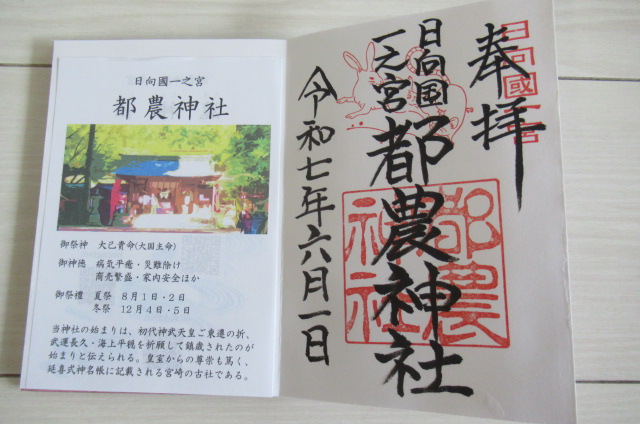 日向國一之宮
都農神社
御祭神 大己貴命(大国主命)
御神徳 病気平癒・災難除け
商売繁盛・家内安全ほか
御祭禮 夏祭 8月1日・2日
冬祭 12月4日・5日
当神社の始まりは、初代神武天皇ご東遷の折、
武運長久・海上平穏を祈願して鎮歳されたのが
始まりと伝えられる。皇室からの尊崇も篤く、
延喜式神名帳に記載される宮崎の古社である。
奉拝
日向國一宮
日向国
一之宮
都農神社
都農神社
令和七年六月一日